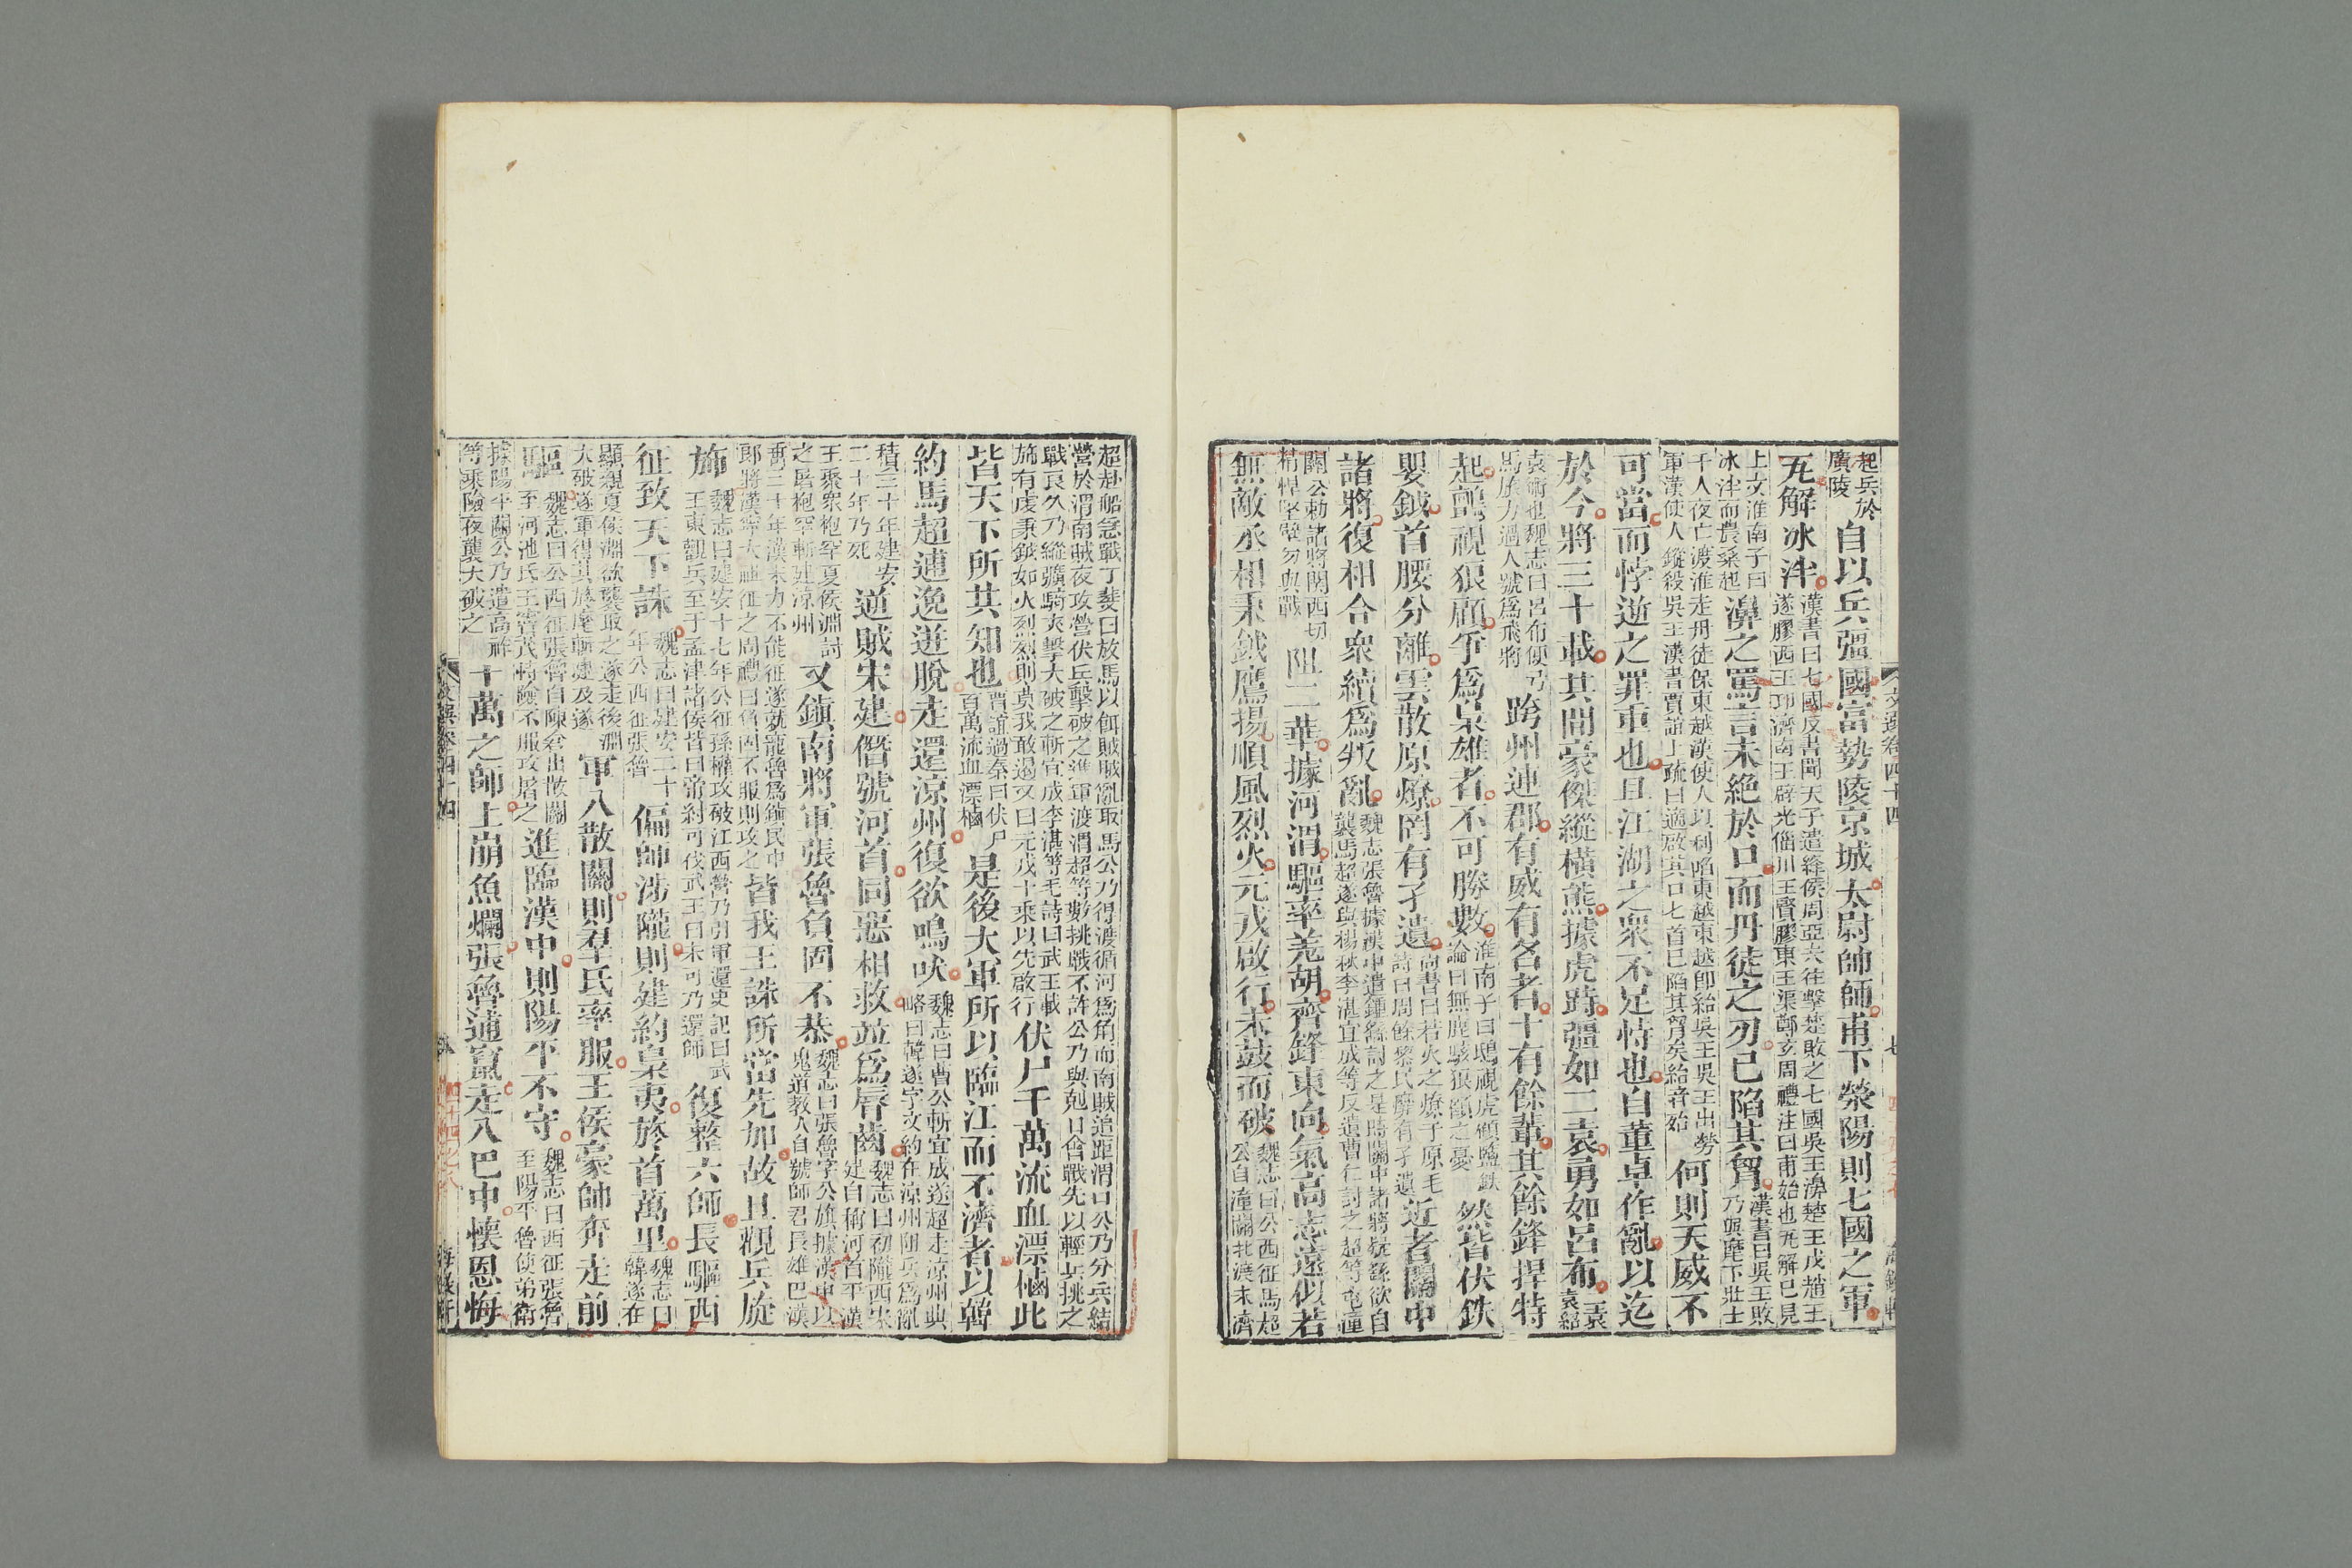 文選卷四十四　七
起兵於廣陵自以兵彊國富勢陵京城太尉帥師甫下滎陽則七國之軍
瓦解冰泮漢書曰七國反書聞天子遣絳侯周亞夫往擊楚敗之七國吳王濞楚王戊趙王遂膠西王卬濟南王辟光淄川王賢膠東王渠鄭玄周禮注曰甫始也瓦解已見
上文淮南子曰冰泮而農桑起濞之罵言未絕於口而丹徒之刃已陷其胷漢書曰吳王敗乃與麾下壯士
千人夜亡渡淮走丹徒保東越漢使人以利啗東越東越卽紿吳王吳王出勞軍漢使人鏦殺吳王漢書賈誼上疏曰適啟其口匕首已陷其胷矣紿音殆何則天威不
可當而悖逆之罪重也且江湖之衆不足恃也自董卓作亂以迄
於今將三十載其間豪傑縱橫熊據虎跱彊如二袁勇如呂布二袁袁紹
袁術也魏志曰呂布便弓馬膂力過人號爲飛將跨州連郡有威有名者十有餘輩其餘鋒捍特
起鸇視狼顧爭爲梟雄者不可勝數淮南子曰鴟視虎顧鹽鉄論曰無鹿駭狼顧之憂然皆伏鈇
嬰鉞首腰分離雲散原燎罔有孑遺尚書曰若火之燎于原毛詩曰周餘黎民靡有孑遺近者關中
諸將復相合衆續爲叛亂魏志張魯據漢中遣鍾繇討之是時關中諸將疑繇欲自襲馬超遂與楊秋李湛宜成等反遣曹仁討之超等屯潼
關公勅諸將關西兵精悍堅壁勿與戰阻二華據河渭驅率羌胡齊鋒東向氣高志遠似若
無敵丞相秉鉞鷹揚順風烈火元戎啟行未鼓而破魏志曰公西征馬超公自潼關北渡未濟
超赴船急戰丁斐曰放馬以餌賊賊亂取馬公乃得渡循河爲甬而南賊追距渭口公乃分兵結營於渭南賊夜攻營伏兵擊破之進軍渡渭超等數挑戰不許公乃與剋日會戰先以輕兵挑之
戰良久乃縱驍騎夾擊大破之斬宜成李湛等毛詩曰武王載旆有虔秉鉞如火烈烈則莫我敢遏又曰元戎十乘以先啟行伏尸千萬流血漂樐此
皆天下所共知也賈誼過秦曰伏尸百萬流血漂樐是後大軍所以臨江而不濟者以韓
約馬超逋逸迸脫走還涼州復欲鳴吠魏志曰曹公斬宜成遂超走涼州典略曰韓遂字文約在涼州阻兵爲亂
積三十年建安二十年乃死逆賊宋建僭號河首同惡相救並爲脣齒魏志曰初隴西宋建自稱河首平漢
王聚衆枹罕夏侯淵討之屠枹罕斬建涼州又鎮南將軍張魯負固不恭魏志曰張魯字公旗據漢中以鬼道敎人自號師君長雄巴漢
垂三十年漢末力不能征遂就寵魯爲鎮民中郎將漢寧太守征之周禮曰負固不服則攻之皆我王誅所當先加故且觀兵旋
旆魏志曰建安十七年公征孫權攻破江西營乃引軍還史記曰武王東觀兵至于孟津諸侯皆曰帝紂可伐武王曰未可乃還師復整六師長驅西
征致天下誅魏志曰建安二十年公西征張魯偏師涉隴則建約梟夷旍首萬里魏志曰韓遂在
顯親夏侯淵欲襲取之遂走後淵大破遂軍得其旍麾斬建及遂軍入散關則羣氐率服王侯豪帥奔走前
驅魏志曰公西征張魯自陳倉出散關至河池氐王竇茂恃險不服攻屠之進臨漢中則陽平不守魏志曰西征張魯至陽平魯使弟衛
據陽平關公乃遣高祚等乘險夜襲大破之十萬之師土崩魚爛張魯逋竄走入巴中懷恩悔